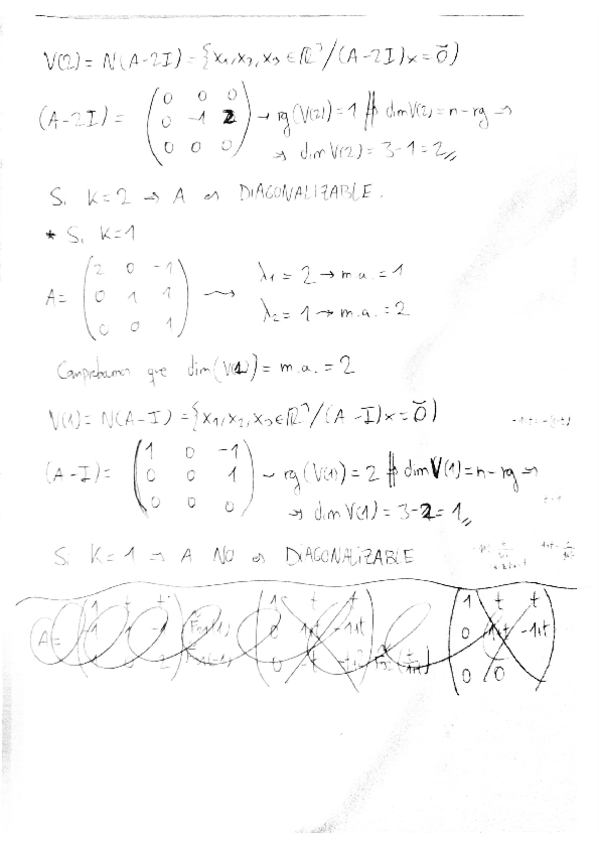 V(2) = N(A-2I) = {x1, x2, x3 ∈ ℝ³ / (A-2I)x = 0̄}
(A-2I) = ( 0 0 0 / 0 -1 2 / 0 0 0 ) → rg(V(2)) = 1 // dim V(2) = n - rg →
→ dim V(2) = 3-1 = 2 //
Si K=2 → A es DIAGONALIZABLE.
* Si K=1
A = ( 2 0 -1 / 0 1 1 / 0 0 1 ) → λ1 = 2 → m.a. = 1
λ2 = 1 → m.a. = 2
Comprobamos que dim(V(1)) = m.a. = 2
V(1) = N(A-I) = {x1, x2, x3 ∈ ℝ³ / (A-I)x = 0̄}
(A-I) = ( 1 0 -1 / 0 0 1 / 0 0 0 ) → rg(V(1)) = 2 // dim V(1) = n - rg →
→ dim V(1) = 3-2 = 1 //
Si K=1 → A NO es DIAGONALIZABLE